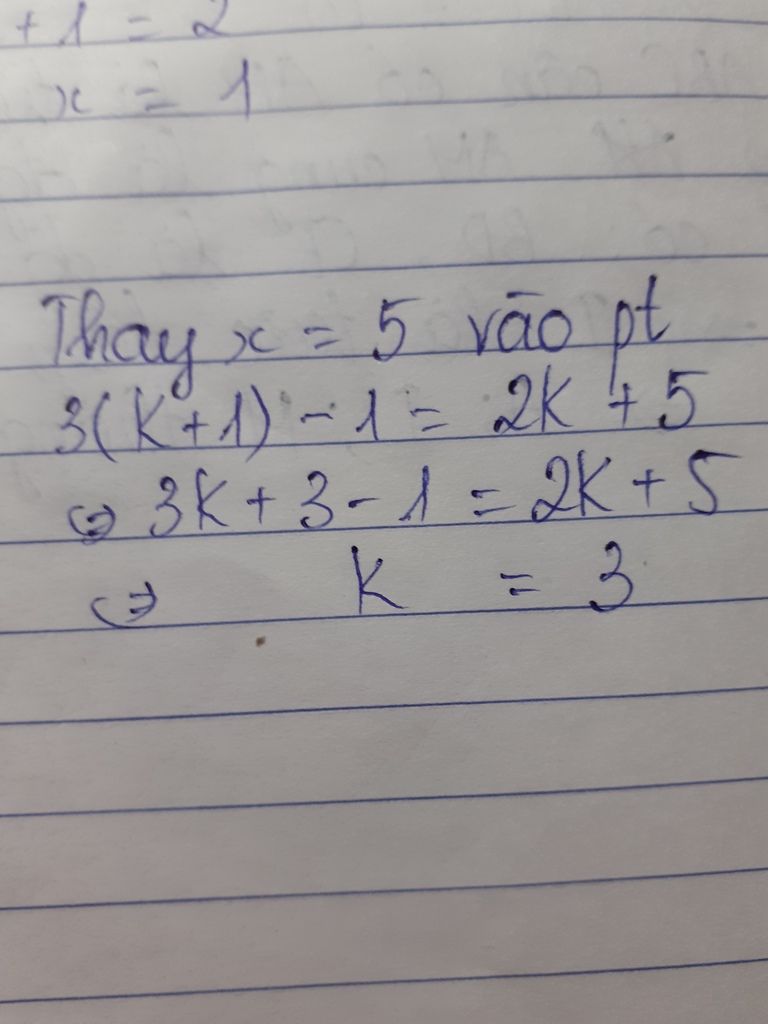 + 1 = 2
x = 1
Thay x = 5 vào pt
3(K+1) - 1 = 2K + 5
⇔ 3K + 3 - 1 = 2K + 5
⇔ K = 3